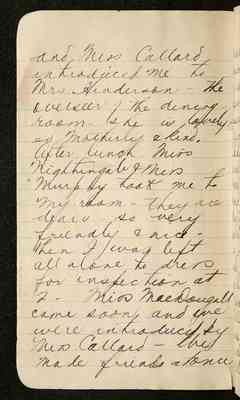 and Miss Callard
introduced me to
Mrs. Henderson - the
overseer of the dining
room. she is lovely
so Motherly & kind.
After lunch Miss
Nightingale & Miss
Murphy took me to
my room - they are
dears so very
friendly & nice -
Then I was left
all alone to dress
for inspection at
2. Miss MacDougall
came soon, and we
were introduced by
Miss Callard - We
made friends at once